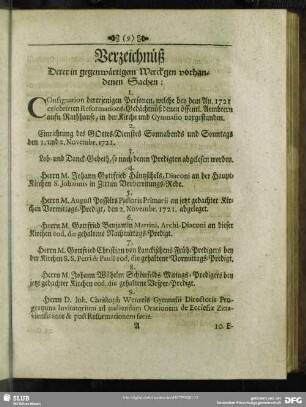 (9)
Verzeichnüß
Derer in gegenwärtigem Wercken vorhan-
denen Sachen:
1.
Consignation dererjenigen Personen, welche bey dem An. 1721
celebrirten Reformations-Gedächtnüß denen öffentl. Aemtern
aufm Rathhause, in der Kirche und Gymnasio vorgestanden.
2.
Einrichtung des GOttes-Dienstes Sonnabends und Sonntags
den 1. und 2. Novembr. 1721.
3.
Lob- und Danck-Gebeth, so nach denen Predigten abgelesen worden.
4.
Herrn M. Johann Gottfried Häntzschels, Diaconi an der Haupt-
Kirchen S. Johannis in Zittau Vorbereitungs-Rede.
5.
Herrn M. August Posselts Pastoris Primarii an jetzt gedachter Kir-
chen Vormittags-Predigt, den 2. Novembr. 1721. abgeleget.
6.
Herrn M. Gottfried Benjamin Martini, Archi-Diaconi an dieser
Kirchen eod. die gehaltene Nachmittags-Predigt.
7.
Herrn M. Gottfried Christian von Lanckischens Früh-Predigers bey
der Kirchen S.S. Petri & Pauli eod. die gehaltene Vormittags-Predigt.
8.
Herrn M. Johann Wilhelm Schönfelds Mittags-Predigers bey
jetzt gedachter Kirchen eod. die gehaltene Vesper-Predigt.
9.
Herrn D. Joh. Christoph Wentzels Gymnasii Directoris Pro-
gramma Invitatorium ad audiendam Orationem de Ecclesiæ Zitta-
viensis ante & post Reformationem facie.
A
10. E-
SLUB